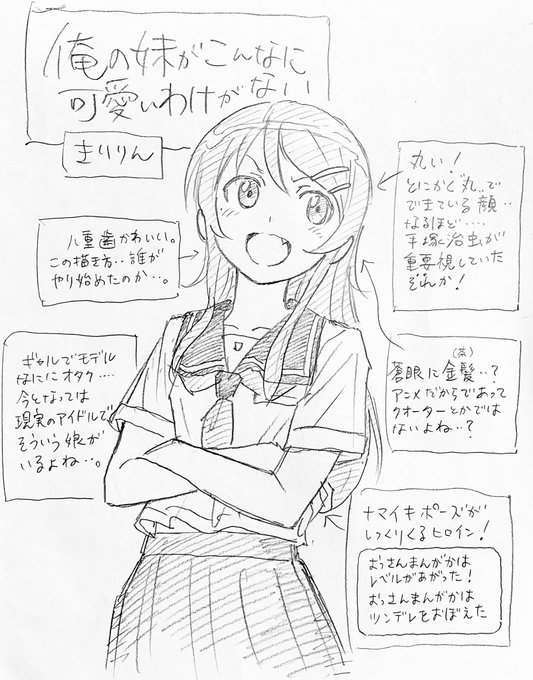 俺の妹がこんなに
可愛いわけがない
きりりん
丸い!
とにかく"丸"で
できている顔‥
なるほど‥‥
手塚治虫が
重要視していた
ぞれか!
八重歯かわいい。
この描き方‥誰が
やり始めたのか‥。
ギャルでモデル
なにオタク‥‥
今となっては
現実のアイドルで
そういう娘が
いるよね‥。
(茶)
蒼眼に金髪‥?
アニメだからであって
クオーターとかでは
ないよね‥?
ナマイキポーズが
しっくりくるヒロイン!
おっさんまんがかは
レベルがあがった!
おっさんまんがかは
ツンデレをおぼえた